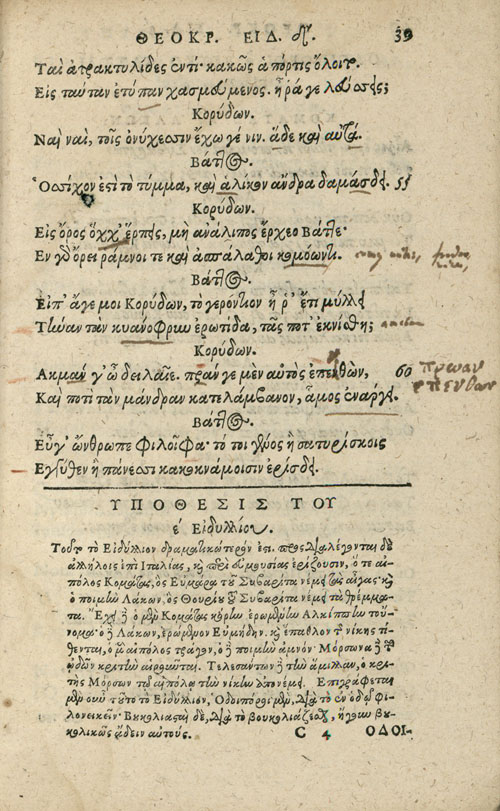 ΘΕΟΚΡ. ΕΙΔ. δ'. 39
Ταὶ ἀτρακτυλίδες ἐντί· κακῶς ἁ πόρτις ὄλοιτο.
Εἰς ταύταν ἐτύπαν χασμεύμενος. ἦ ῥά γε λεύσσεις;
Κορύδων.
Ναὶ ναί, τοῖς ὀνύχεσσιν ἔχω γέ νιν. ἅδε καὶ αὐτά.
Βάττος.
Ὁσσίχον ἐστὶ τὸ τύμμα, καὶ ἁλίκον ἄνδρα δαμάσδει. 55
Κορύδων.
Εἰς ὄρος ὅκχ' ἕρπῃς, μὴ ἀνάλιπος ἔρχεο Βάττε·
Ἐν γὸ ὄρει ῥάμνοι τε καὶ ἀσπάλαθοι κομόωντι.
Βάττος.
Εἴπ' ἄγε μοι Κορύδων, τὸ γερόντιον ἦ ῥ' ἔτι μύλλει
Τήναν τὰν κυανόφρυν ἐρωτίδα, τᾶς ποτ' ἐκνίσθη;
Κορύδων.
Ἀκμὰν γ' ὦ δειλαῖε. πρώαν γε μὲν αὐτὸς ἐπενθὼν, 60 πρωαν
Καὶ ποτὶ τὰν μάνδραν κατελάμβανον, ἆμος ἐνάργει. επενθων
Βάττος.
Εὖγ' ὤνθρωπε φιλοῖφα· τό τοι γένος ἢ σατυρίσκοις
Ἐγγύθεν ἢ πάνεσσι κακοκνάμοισιν ἐρίσδει.
ΥΠΟΘΕΣΙΣ ΤΟΥ
ε' Εἰδυλλίου.
Τοῦτο τὸ Εἰδύλλιον δραματικώτερόν ἐστι. προσδιαλέγονται δὲ
ἀλλήλοις ἐπὶ Ἰταλίας, καὶ περὶ ἐμμουσίας ἐρίζουσιν, ὅ τε αἰ-
πόλος Κομάτας, ὃς Εὐμάρα τοῦ Συβαρίτα νέμει τὰς αἶγας· καὶ
ὁ ποιμὴν Λάκων, ὃς Θουρίου τοῦ Συβαρίτα νέμει τὰ θρέμμα-
τα. Ἔχει δὲ ὁ μὲν Κομάτας κύριον ἐρωμένην Ἀλκίππην τοὔ-
νομα· ὁ δὲ Λάκων, ἐρώμενον Εὐμήδην. καὶ ἔπαθλον τῆς νίκης τί-
θενται, ὁ μὲν αἰπόλος τράγον, ὁ δὲ ποιμὴν ἀμνόν. Μόρσωνα δὲ τῶν
ᾠδῶν κριτὴν αἱροῦνται. Τελεσάντων δὲ τὴν ἅμιλλαν, ὁ κρι-
τὴς Μόρσων τῷ αἰπόλῳ τὴν νίκην ἀπονέμει. Ἐπιγράφεται
μὲν οὖν τοῦτο τὸ Εἰδύλλιον, Ὁδοιπόροι μὲν, διὰ τὸ ἐν ὁδῷ φι-
λονεικεῖν· Βουκολιασταὶ δὲ, διὰ τὸ βουκολιάζεσθαι, ἤγουν βου-
κολικῶς ᾄδειν αὐτούς.
C 4 ΟΔΟΙ-